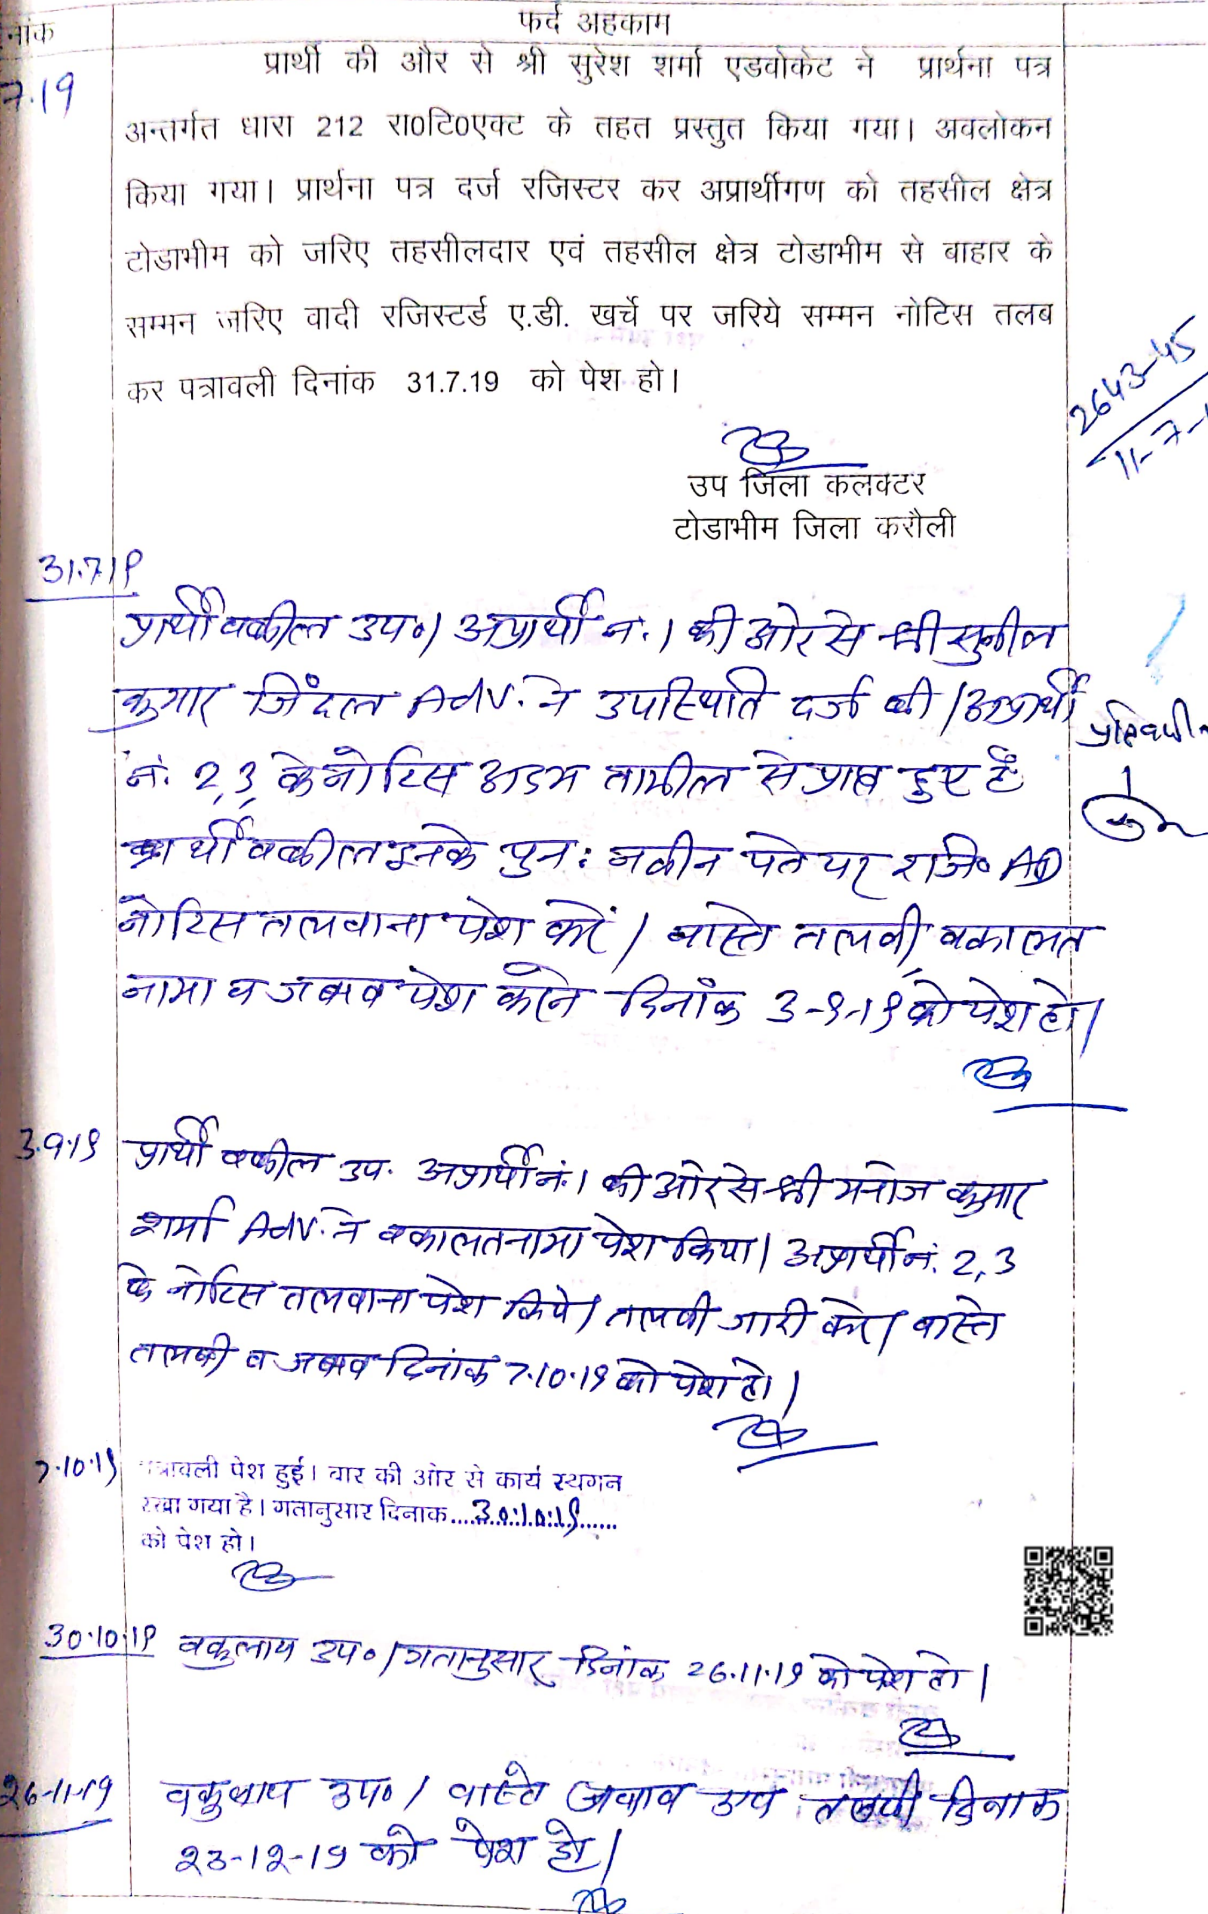 नांक
फर्द अहकाम
7.19
प्रार्थी की और से श्री सुरेश शर्मा एडवोकेट ने प्रार्थना पत्र
अन्तर्गत धारा 212 रा0टि0एक्ट के तहत प्रस्तुत किया गया। अवलोकन
किया गया। प्रार्थना पत्र दर्ज रजिस्टर कर अप्रार्थीगण को तहसील क्षेत्र
टोडाभीम को जरिए तहसीलदार एवं तहसील क्षेत्र टोडाभीम से बाहार के
सम्मन जरिए वादी रजिस्टर्ड ए.डी. खर्चे पर जरिये सम्मन नोटिस तलब
कर पत्रावली दिनांक 31.7.19 को पेश हो।
2643-45
11-7-
उप जिला कलक्टर
टोडाभीम जिला करौली
31.7.19
प्रार्थी वकील उप०। अप्रार्थी नं. 1 की ओर से श्री सुनील
कुमार जिंदल Adv. ने उपस्थिति दर्ज की। अप्रार्थी
नं. 2,3 के नोटिस अदम तामील से प्राप्त हुए है
प्रार्थी वकील इनके पुनः नवीन पते पर रजि० AD
नोटिस तलवाना पेश करें। वास्ते तलवी, वकालत
नामा व जबाव पेश करने दिनांक 3-9-19 को पेश हो।
3.9.19
प्रार्थी वकील उप. अप्रार्थी नं. 1 की ओर से श्री मनोज कुमार
शर्मा Adv. ने वकालतनामा पेश किया। अप्रार्थी नं. 2,3
के नोटिस तलवाना पेश किये। तलवी जारी करे। वास्ते
तलवी व जबाव दिनांक 7.10.19 को पेश हो।
7.10.19
पत्रावली पेश हुई। वार की ओर से कार्य स्थगन
रखा गया है। गतानुसार दिनाक....30.10.19......
को पेश हो।
30.10.19
वकुलाय उप०। गतानुसार दिनांक 26.11.19 को पेश हो।
26-11-19
वकुलाय उप०। वास्ते जबाव उप तलवी दिनाक
23-12-19 को पेश हो।